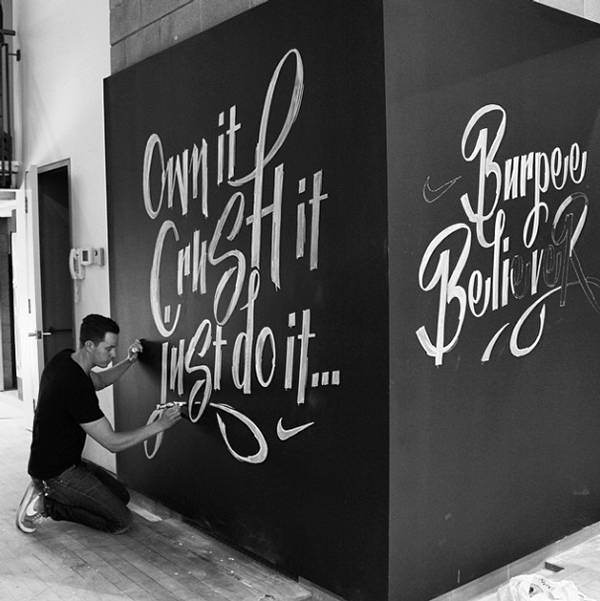 Own it
Crush it
Just do it...
Burpee
Believer